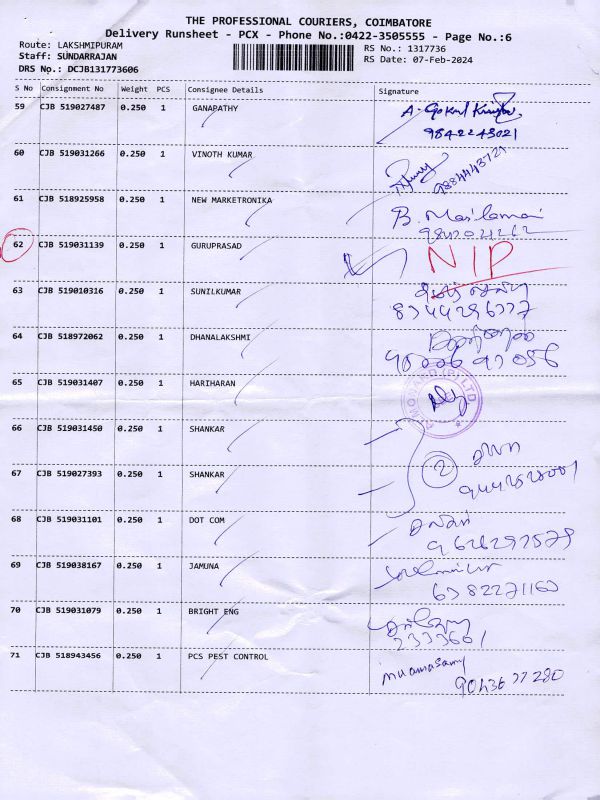 THE PROFESSIONAL COURIERS, COIMBATORE
Delivery Runsheet - PCX - Phone No.:0422-3505555 - Page No.:6
Route: LAKSHMIPURAM
Staff: SUNDARRAJAN
DRS No.: DCJB131773606
RS No.: 1317736
RS Date: 07-Feb-2024
S No Consignment No Weight PCS Consignee Details Signature
59 CJB 519027487 0.250 1 GANAPATHY A. Gokul
9842243021
60 CJB 519031266 0.250 1 VINOTH KUMAR
9884443721
61 CJB 518925958 0.250 1 NEW MARKETRONIKA B.
62 CJB 519031139 0.250 1 GURUPRASAD NIP
63 CJB 519010316 0.250 1 SUNILKUMAR
8344296777
64 CJB 518972062 0.250 1 DHANALAKSHMI
65 CJB 519031407 0.250 1 HARIHARAN
66 CJB 519031450 0.250 1 SHANKAR
67 CJB 519027393 0.250 1 SHANKAR 2
68 CJB 519031101 0.250 1 DOT COM
9626292579
69 CJB 519038167 0.250 1 JAMUNA
6382271160
70 CJB 519031079 0.250 1 BRIGHT ENG
2333601
71 CJB 518943456 0.250 1 PCS PEST CONTROL